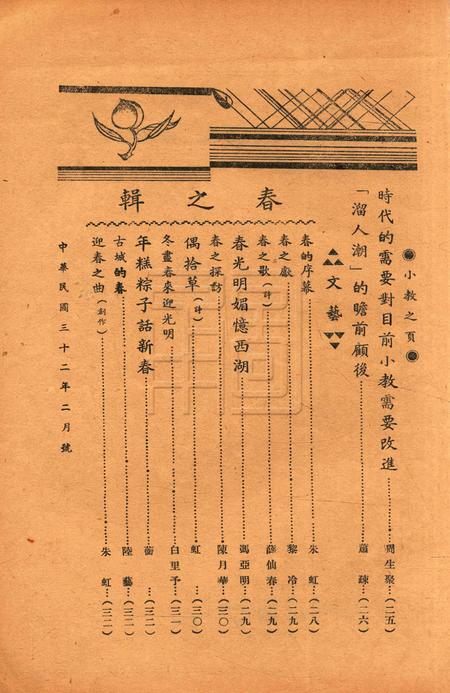 ●小教之頁●
時代的需要對目前小教需要改進……周生聚…(二五)
「溜人潮」的瞻前顧後……蕭疎…(二六)
文藝
春之輯
春的序幕……朱虹…(二八)
春之獻……黎冷…(二九)
春之歌(詩)……薛仙春…(二九)
春光明媚憶西湖……馮亞明…(二九)
春之探訪……陳月華…(三〇)
偶拾草(詩)……虹…(三〇)
冬盡春來迎光明……白里予…(三一)
年糕粽子話新春……蘅…(三二)
古城的春……陸藝…(三二)
迎春之曲(創作)……朱虹…(三二)
中華民國三十二年二月號